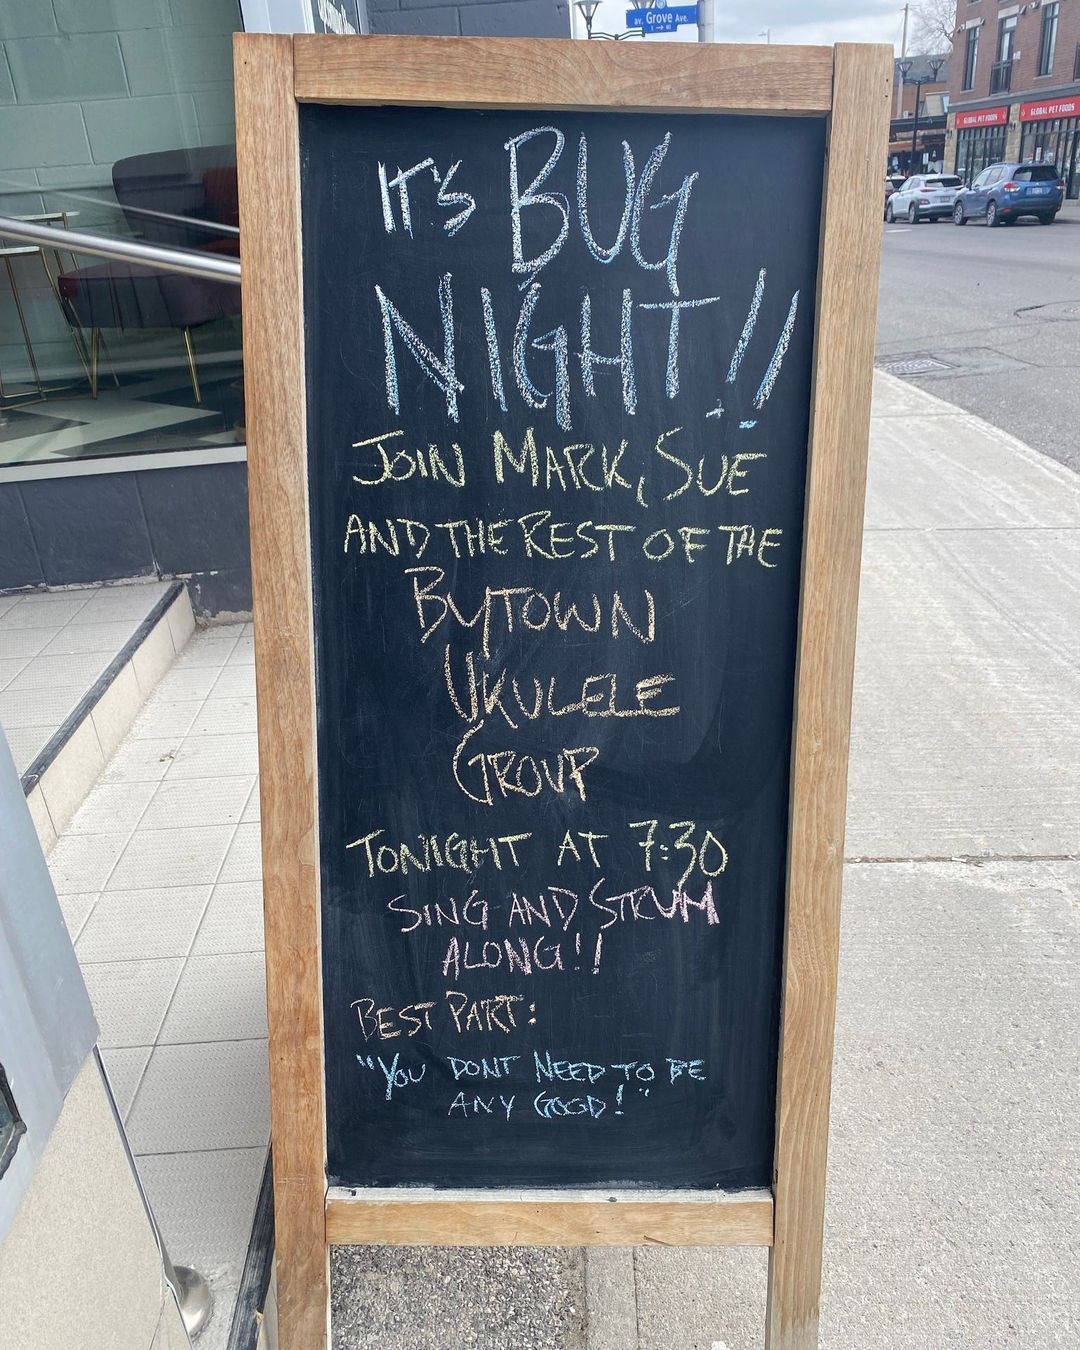 av. Grove Ave.
GLOBAL PET FOODS
GLOBAL PET FOODS
IT'S BUG
NIGHT!!
JOIN MARK, SUE
AND THE REST OF THE
BYTOWN
UKULELE
GROUP
TONIGHT AT 7:30
SING AND STRUM
ALONG!!
BEST PART:
"YOU DONT NEED TO BE
ANY GOOD!"